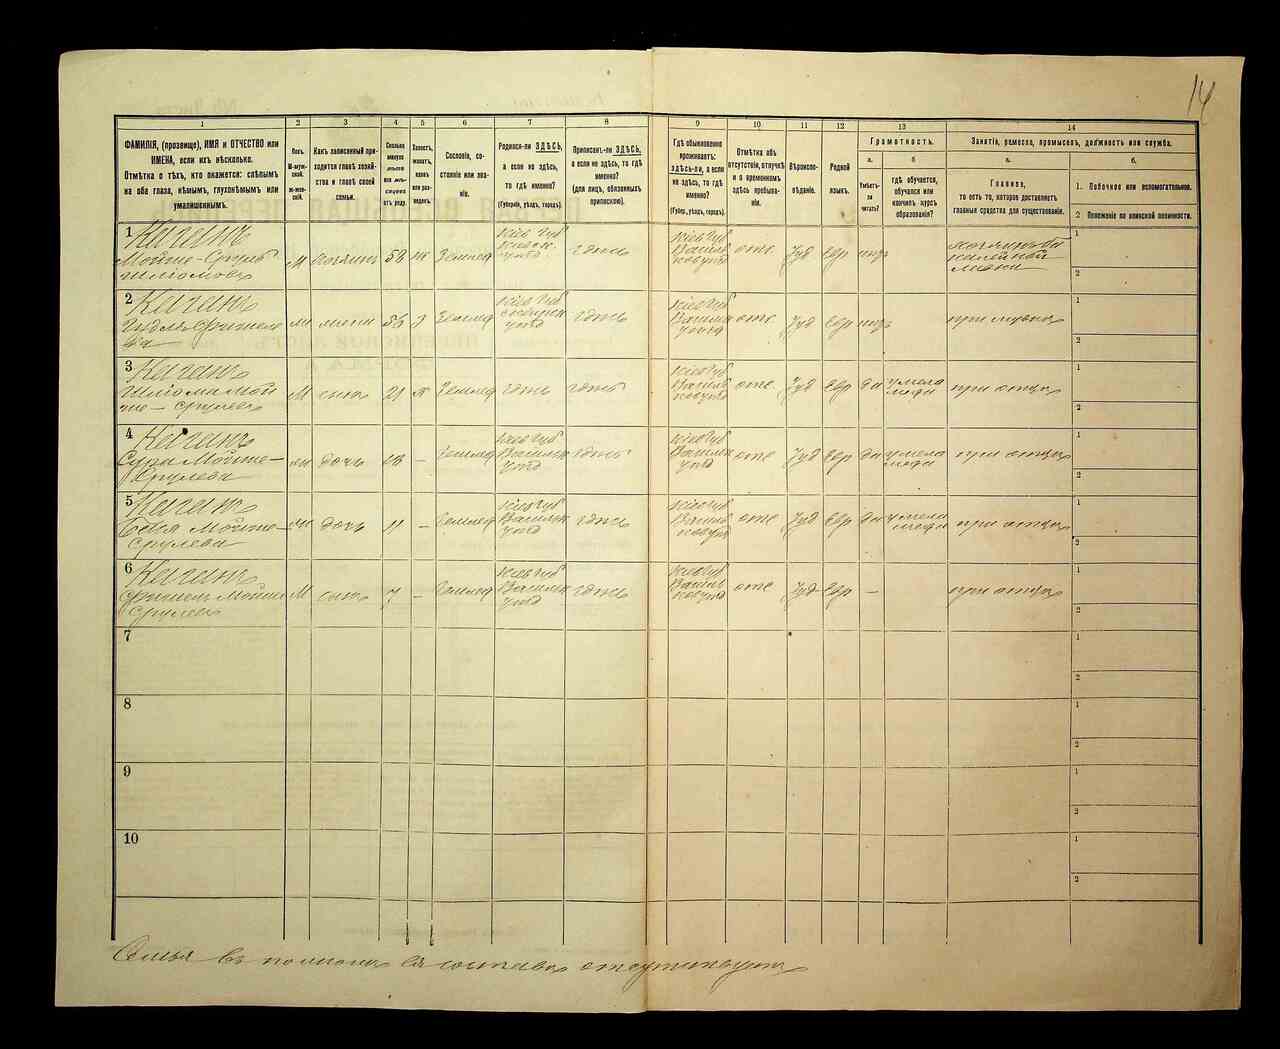 14
1 2 3 4 5 6 7 8 9 10 11 12 13 14
ФАМИЛІЯ, (прозвище), ИМЯ и ОТЧЕСТВО или
ИМЕНА, если ихъ нѣсколько.
Отмѣтка о тѣхъ, кто окажется: слѣпымъ
на оба глаза, нѣмымъ, глухонѣмымъ или
умалишеннымъ.
Полъ.
М-муж-
ской.
Ж-жен-
скій.
Какъ записанный при-
ходится главѣ хозяй-
ства и главѣ своей
семьи.
Сколько
минуло
лѣтъ
или мѣ-
сяцевъ
отъ роду.
Холостъ,
женатъ,
вдовъ
или раз-
веденъ.
Сословіе, со-
стояніе или зва-
ніе.
Родился-ли ЗДѢСЬ,
а если не здѣсь,
то гдѣ именно?
(Губернія, уѣздъ, городъ).
Приписанъ-ли ЗДѢСЬ,
а если не здѣсь, то гдѣ
именно?
(для лицъ, обязанныхъ
припискою).
Гдѣ обыкновенно
проживаетъ:
здѣсь-ли, а если
не здѣсь, то гдѣ
именно?
(Губер., уѣздъ, городъ).
Отмѣтка объ
отсутствіи, отлучкѣ
и о временномъ
здѣсь пребыва-
ніи.
Вѣроиспо-
вѣданіе.
Родной
языкъ.
Грамотность.
а. б
Умѣетъ-
ли
читать?
гдѣ обучается,
обучался или
кончилъ курсъ
образованія?
Занятіе, ремесло, промыселъ, должность или служба.
а. б.
Главное,
то есть то, которое доставляетъ
главныя средства для существованія.
1. Побочное или вспомогательное.
2 Положеніе по воинской повинности.
1 Каганъ
Мойше-Сруль
Шліомовъ
М хозяинъ 58 Землед Кіев Губ
здѣсь Кіев Губ
Васильковуѣзд отс. Іуд Евр
1
2
2 Каганъ
жена 56 Землед Кіев Губ
здѣсь Кіев Губ
отс Іуд Евр при мужѣ
1
2
3 Каганъ
Шліома Мой
ше-Срулевъ
М сынъ 21 Землед здѣсь здѣсь Кіев Губ
Васильковуѣзд отс. Іуд Евр да при отцѣ
1
2
4 Каганъ
Сура Мойше-
Срулева
дочь 18 - Землед Кіев Губ
Васильк
уѣзд здѣсь Кіев Губ
Васильк
уѣзд отс Іуд Евр да при отцѣ
1
2
5 Каганъ
Мойше-
Срулева
дочь 11 - Землед Кіев Губ
Васильк
уѣзд здѣсь Кіев Губ
Васильковуѣзд отс Іуд Евр да при отцѣ
1
2
6 Каганъ
Мойше
Срулевъ
М сынъ 7 - Землед Кіев Губ
Васильк
уѣзд здѣсь Кіев Губ
Васильковуѣзд отс Іуд Евр - при отцѣ
1
2
7
1
2
8
1
2
9
1
2
10
1
2
Семья въ полномъ ея составѣ отсутствуетъ